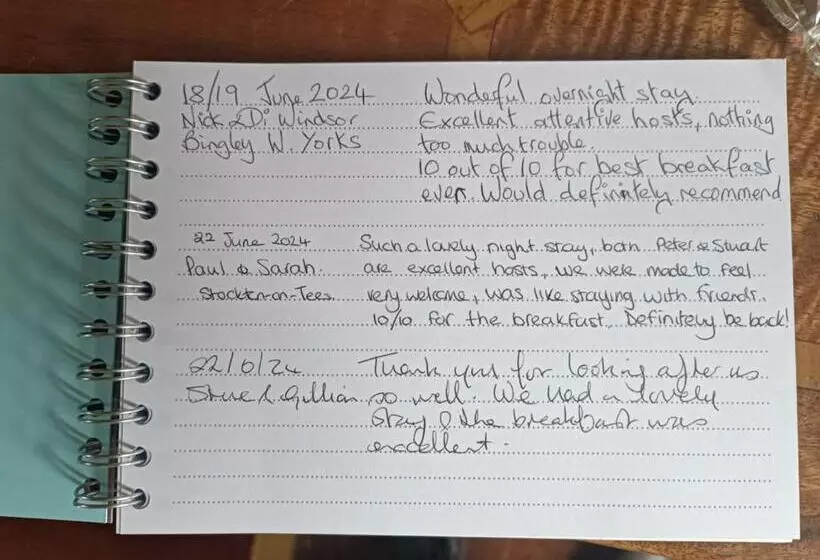 18/19 June 2024 Wonderful overnight stay.
Nick & Di Windsor Excellent attentive hosts, nothing
Bingley W. Yorks too much trouble.
10 out of 10 for best breakfast
ever. Would definitely recommend
22 June 2024 Such a lovely night stay, both Peter & Stuart
Paul & Sarah. are excellent hosts, we were made to feel
Stockton-on-Tees. very welcome, was like staying with friends.
10/10 for the breakfast. Definitely be back!
22/6/24 Thank you for looking after us
Steve & Gillian so well. We had a lovely
stay & the breakfast was
excellent.